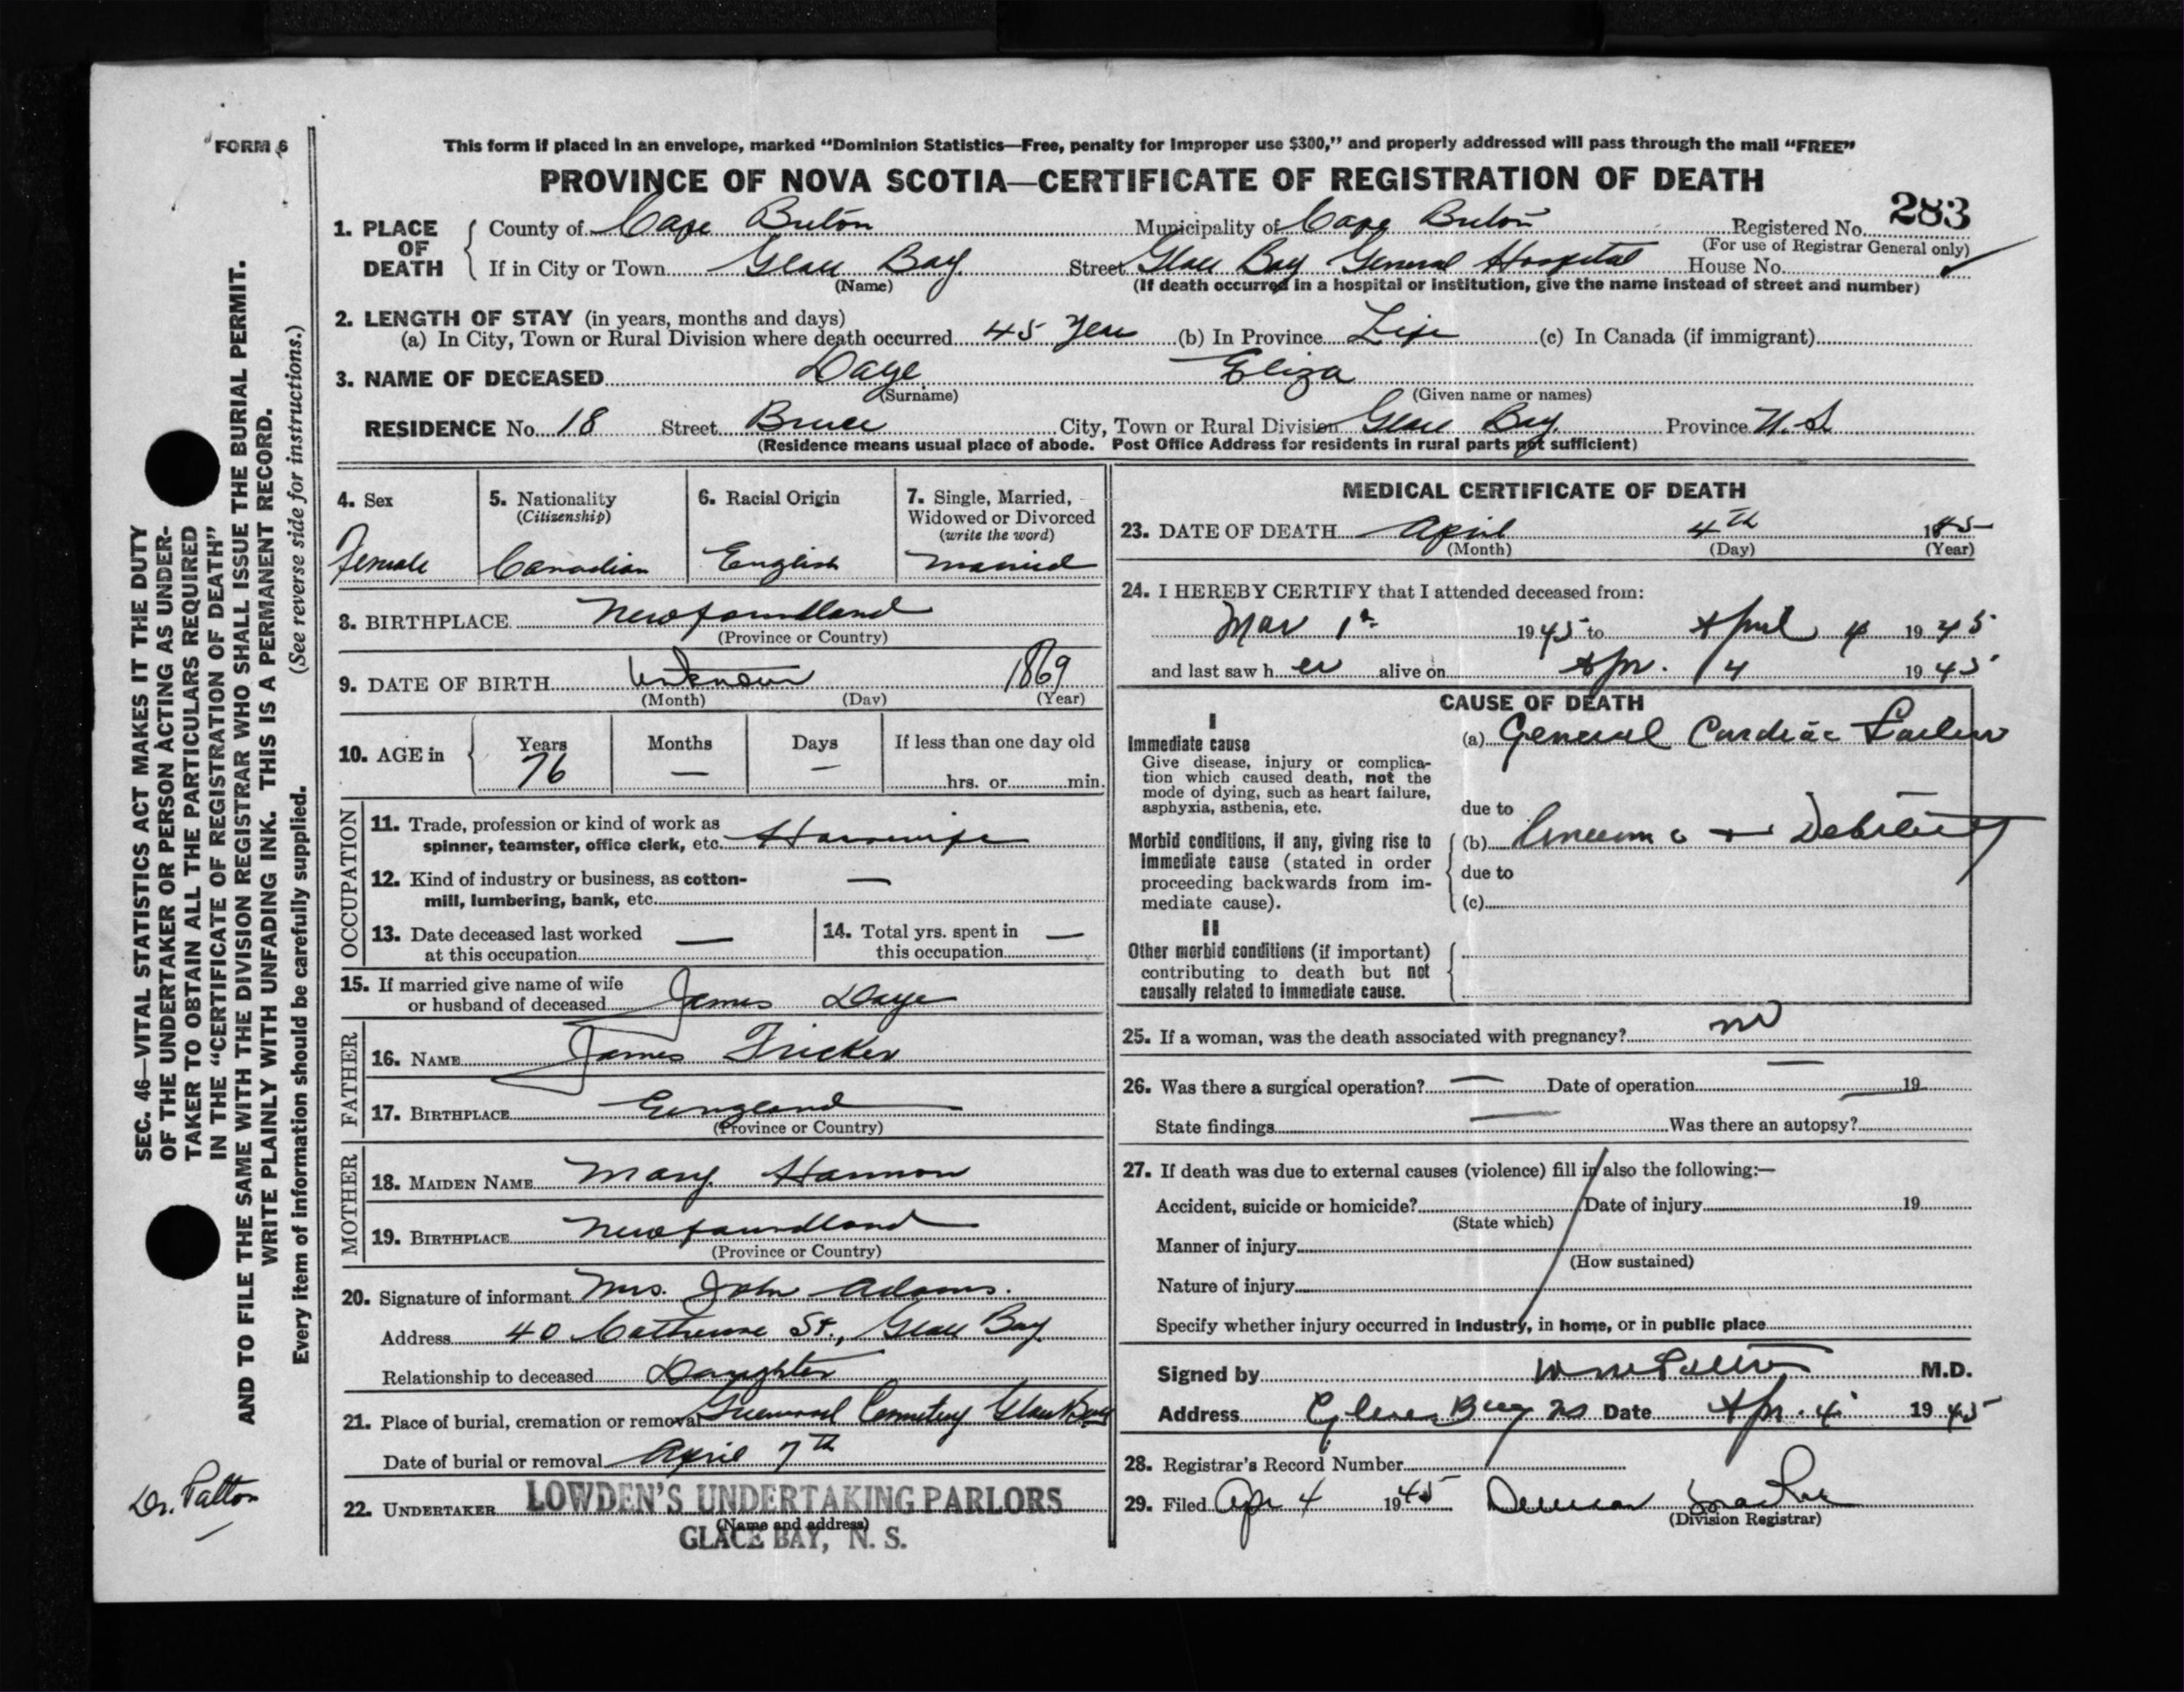 FORM 6
This form if placed in an envelope, marked "Dominion Statistics—Free, penalty for improper use $300," and properly addressed will pass through the mail "FREE"
PROVINCE OF NOVA SCOTIA—CERTIFICATE OF REGISTRATION OF DEATH
283
1. PLACE OF DEATH
County of Cape Breton Municipality of Cape Breton Registered No.
(For use of Registrar General only)
If in City or Town Glace Bay Street Glace Bay General Hospital House No.
(Name) (If death occurred in a hospital or institution, give the name instead of street and number)
2. LENGTH OF STAY (in years, months and days)
(a) In City, Town or Rural Division where death occurred 45 Years (b) In Province Life (c) In Canada (if immigrant)
3. NAME OF DECEASED Daye Eliza
(Surname) (Given name or names)
RESIDENCE No. 18 Street Bruce City, Town or Rural Division Glace Bay Province N.S
(Residence means usual place of abode. Post Office Address for residents in rural parts not sufficient)
4. Sex
Female
5. Nationality
(Citizenship)
Canadian
6. Racial Origin
English
7. Single, Married,
Widowed or Divorced
(write the word)
Married
8. BIRTHPLACE Newfoundland
(Province or Country)
9. DATE OF BIRTH Unknown 1869
(Month) (Day) (Year)
10. AGE in
Years Months Days If less than one day old
76 — — hrs. or min.
OCCUPATION
11. Trade, profession or kind of work as
spinner, teamster, office clerk, etc. Housewife
12. Kind of industry or business, as cotton-
mill, lumbering, bank, etc. —
13. Date deceased last worked
at this occupation —
14. Total yrs. spent in
this occupation —
15. If married give name of wife
or husband of deceased James Daye
FATHER
16. NAME James Fricker
17. BIRTHPLACE England
(Province or Country)
MOTHER
18. MAIDEN NAME Mary Hannon
19. BIRTHPLACE Newfoundland
(Province or Country)
20. Signature of informant Mrs. John Adams.
Address 40 Catherine St., Glace Bay
Relationship to deceased Daughter
21. Place of burial, cremation or removal Greenwood Cemetery Glace Bay
Date of burial or removal April 7th
22. UNDERTAKER LOWDEN'S UNDERTAKING PARLORS
(Name and address)
GLACE BAY, N. S.
MEDICAL CERTIFICATE OF DEATH
23. DATE OF DEATH April 4th
(Month) (Day) (Year)
24. I HEREBY CERTIFY that I attended deceased from:
Mar 1st 1945 to April 4 1945
and last saw her alive on Apr. 4 1945
CAUSE OF DEATH
I
Immediate cause
Give disease, injury or complica-
tion which caused death, not the
mode of dying, such as heart failure,
asphyxia, asthenia, etc.
(a) General Cardiac Failure
due to
Morbid conditions, if any, giving rise to
immediate cause (stated in order
proceeding backwards from im-
mediate cause).
(b) + Debility
due to
(c)
II
Other morbid conditions (if important)
contributing to death but not
causally related to immediate cause.
25. If a woman, was the death associated with pregnancy? no
26. Was there a surgical operation? — Date of operation — 19
State findings — Was there an autopsy?
27. If death was due to external causes (violence) fill in also the following:—
Accident, suicide or homicide? Date of injury 19
(State which)
Manner of injury
(How sustained)
Nature of injury
Specify whether injury occurred in industry, in home, or in public place
Signed by M.D.
Address Glace Bay NS Date Apr. 4 1945
28. Registrar's Record Number
29. Filed Apr 4 1945
(Division Registrar)
SEC. 46—VITAL STATISTICS ACT MAKES IT THE DUTY
OF THE UNDERTAKER OR PERSON ACTING AS UNDER-
TAKER TO OBTAIN ALL THE PARTICULARS REQUIRED
IN THE "CERTIFICATE OF REGISTRATION OF DEATH"
AND TO FILE THE SAME WITH THE DIVISION REGISTRAR WHO SHALL ISSUE THE BURIAL PERMIT.
WRITE PLAINLY WITH UNFADING INK. THIS IS A PERMANENT RECORD.
Every item of information should be carefully supplied. (See reverse side for instructions.)
Dr. Patton